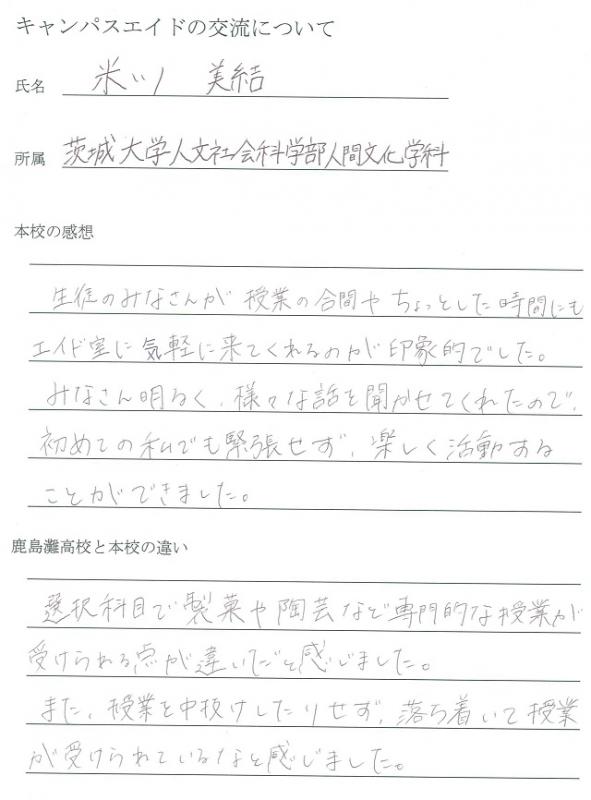 キャンパスエイドの交流について
氏名 米川 美結
所属 茨城大学人文社会科学部人間文化学科
本校の感想
生徒のみなさんが授業の合間やちょっとした時間にも
エイド室に気軽に来てくれるのが印象的でした。
みなさん明るく、様々な話を聞かせてくれたので、
初めての私でも緊張せず、楽しく活動する
ことができました。
鹿島灘高校と本校の違い
選択科目で製菓や陶芸など専門的な授業が
受けられる点が違いだと感じました。
また、授業を中抜けしたりせず、落ち着いて授業
が受けられているなと感じました。